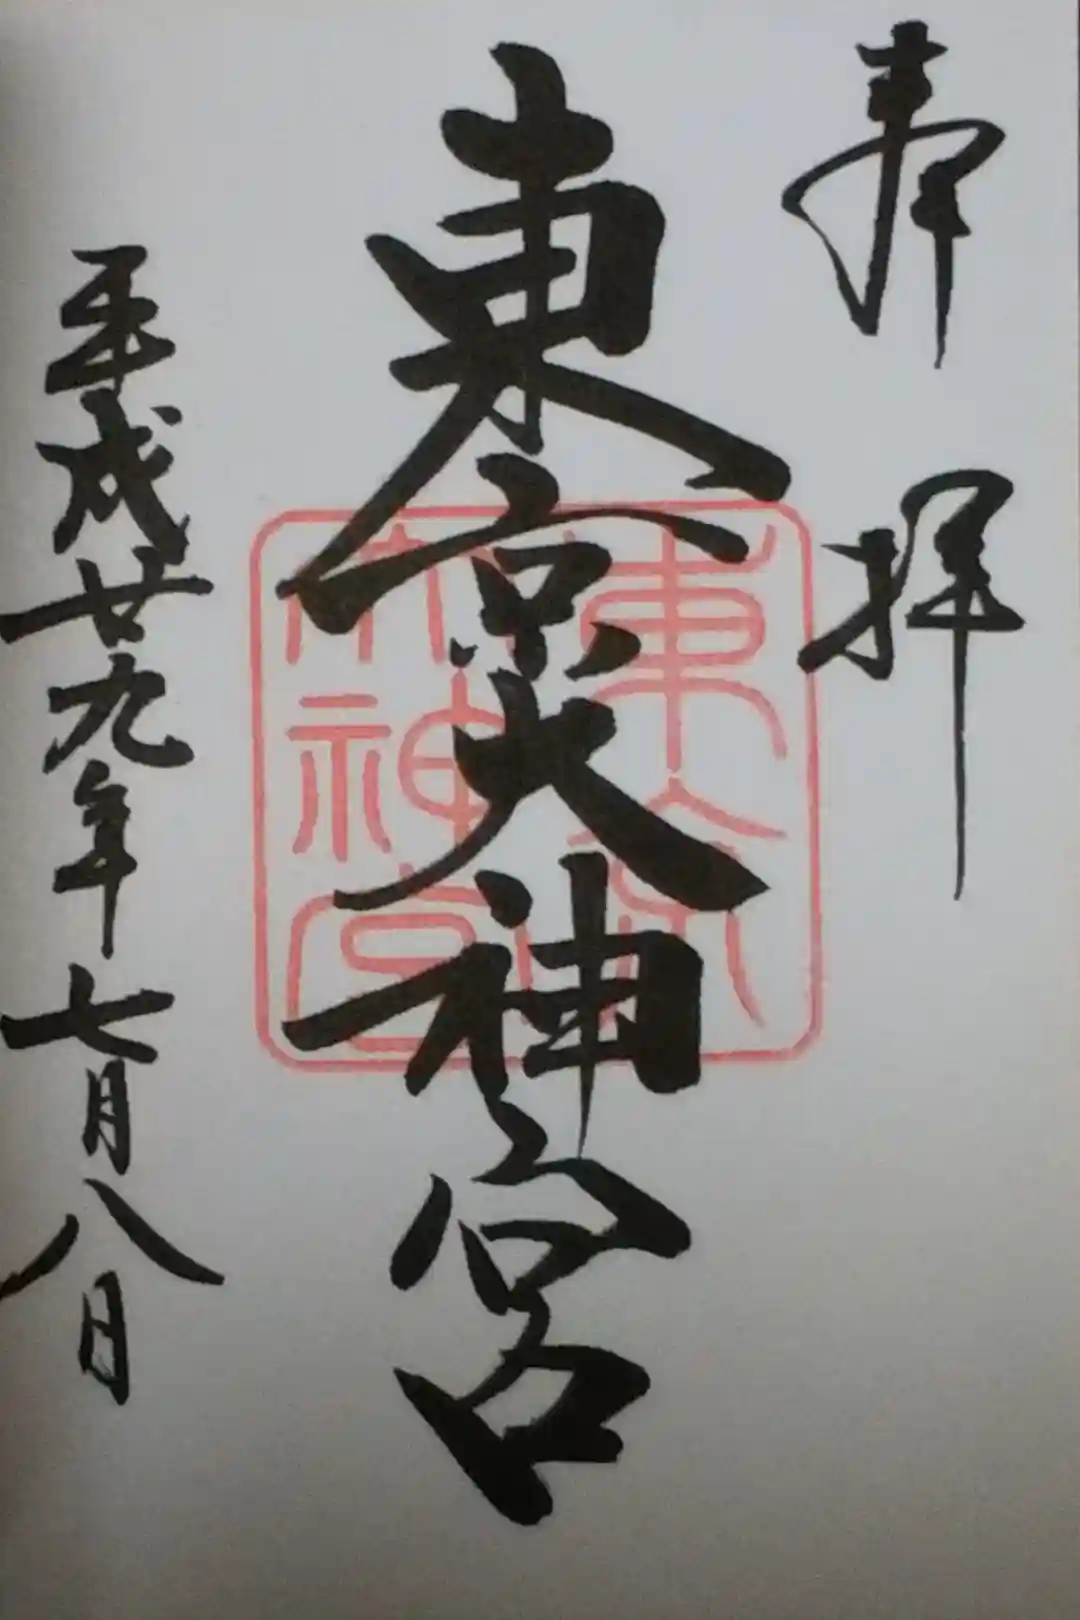 奉拝
東京大神宮
東京
大神宮
平成廿九年七月八日